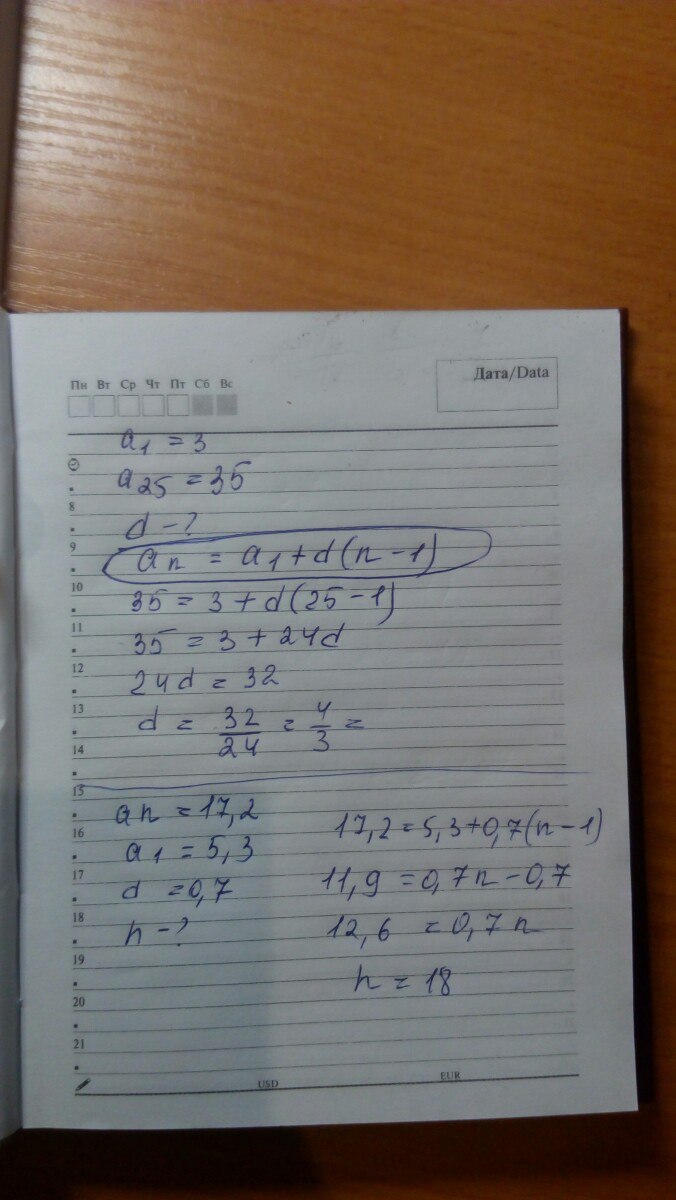 Пн Вт Ср Чт Пт Сб Вс
Дата/Data
a₁ = 3
a₂₅ = 35
8
d - ?
9
aₙ = a₁ + d(n - 1)
10
35 = 3 + d(25 - 1)
11
35 = 3 + 24d
12
24d = 32
13
d = 32/24 = 4/3 =
14
15
aₙ = 17,2
16
a₁ = 5,3
17
d = 0,7
18
n - ?
19
20
21
17,2 = 5,3 + 0,7(n - 1)
11,9 = 0,7n - 0,7
12,6 = 0,7n
n = 18
USD EUR